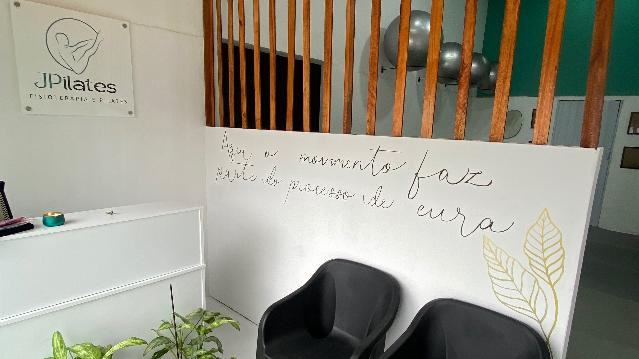 JPilates
FISIOTERAPIA E PILATES
Aqui o movimento faz
parte do processo de cura